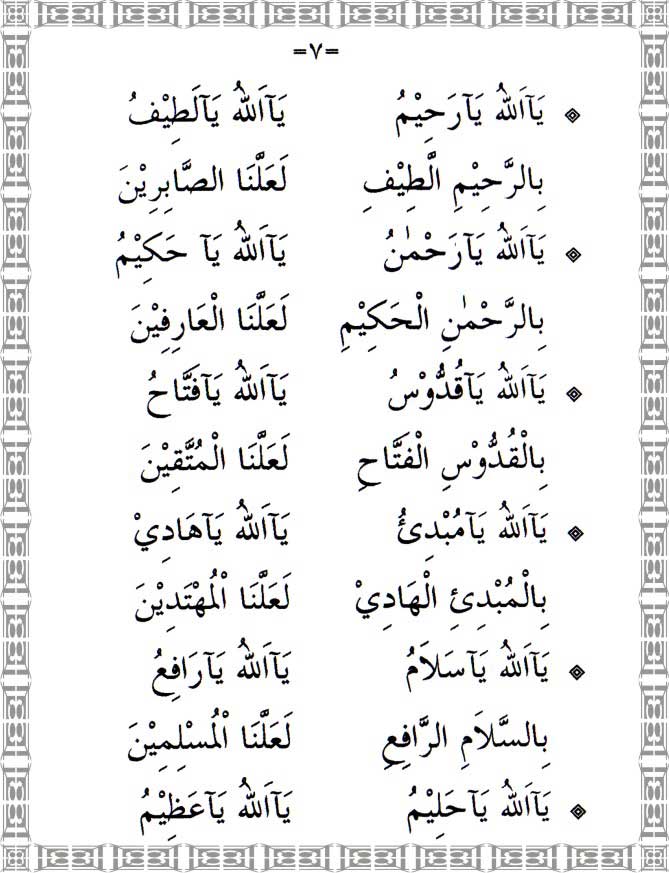 =٧=
يَآاَللهُ يَآرَحِيْمُ يَآاَللهُ يَآلَطِيْفُ
بِالرَّحِيْمِ الَّطِيْفِ لَعَلَّنَا الصَّابِرِيْنَ
يَآاَللهُ يَآرَحْمٰنُ يَآاَللهُ يَآ حَكِيْمُ
بِالرَّحْمٰنِ الْحَكِيْمِ لَعَلَّنَا الْعَارِفِيْنَ
يَآاَللهُ يَآقُدُّوْسُ يَآاَللهُ يَآفَتَّاحُ
بِالْقُدُّوْسِ الْفَتَّاحِ لَعَلَّنَا الْمُتَّقِيْنَ
يَآاَللهُ يَآمُبْدِئُ يَآاَللهُ يَآهَادِيْ
بِالْمُبْدِئِ الْهَادِيْ لَعَلَّنَا الْمُهْتَدِيْنَ
يَآاَللهُ يَآسَلَامُ يَآاَللهُ يَآرَافِعُ
بِالسَّلَامِ الرَّافِعِ لَعَلَّنَا الْمُسْلِمِيْنَ
يَآاَللهُ يَآحَلِيْمُ يَآاَللهُ يَآعَظِيْمُ